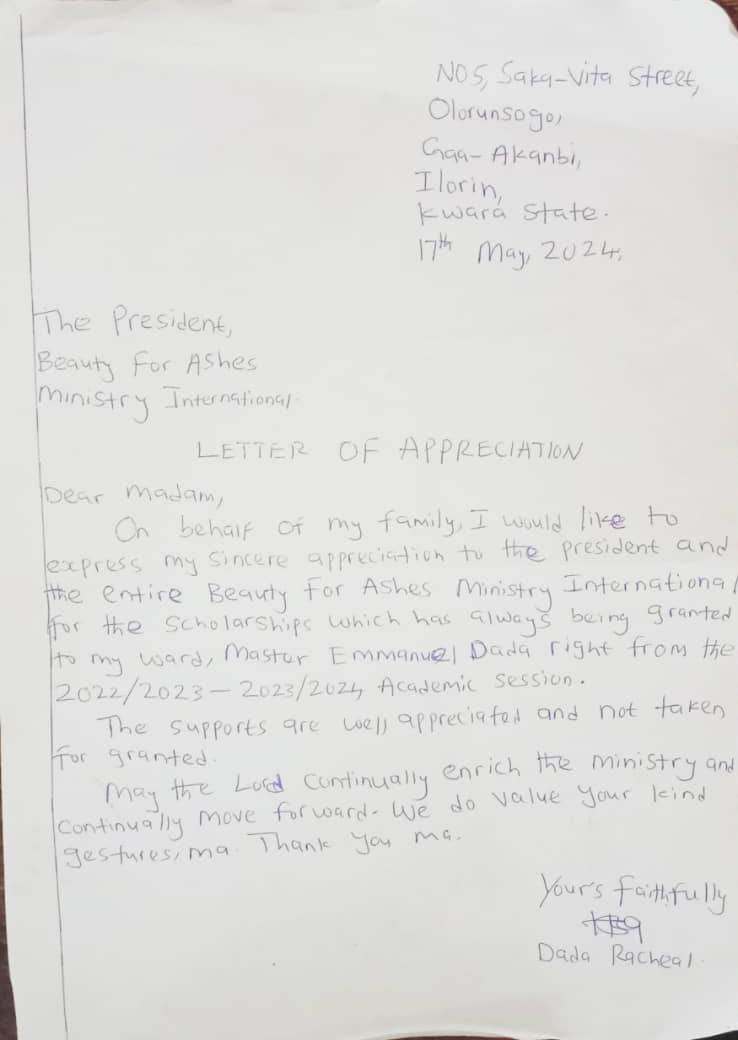 NO 5, Saka-Vita Street,
Olorunsogo,
Gaa-Akanbi,
Ilorin,
Kwara State.
17th May, 2024.
The President,
Beauty For Ashes
Ministry International.
LETTER OF APPRECIATION
Dear Madam,
On behalf of my family, I would like to
express my sincere appreciation to the president and
the entire Beauty For Ashes Ministry International
for the Scholarships which has always being granted
to my ward, Master Emmanuel Dada right from the
2022/2023 – 2023/2024 Academic session.
The supports are well appreciated and not taken
for granted.
May the Lord continually enrich the ministry and
continually move forward. We do value your kind
gestures, ma. Thank you ma.
Your's faithfully
Dada Racheal.